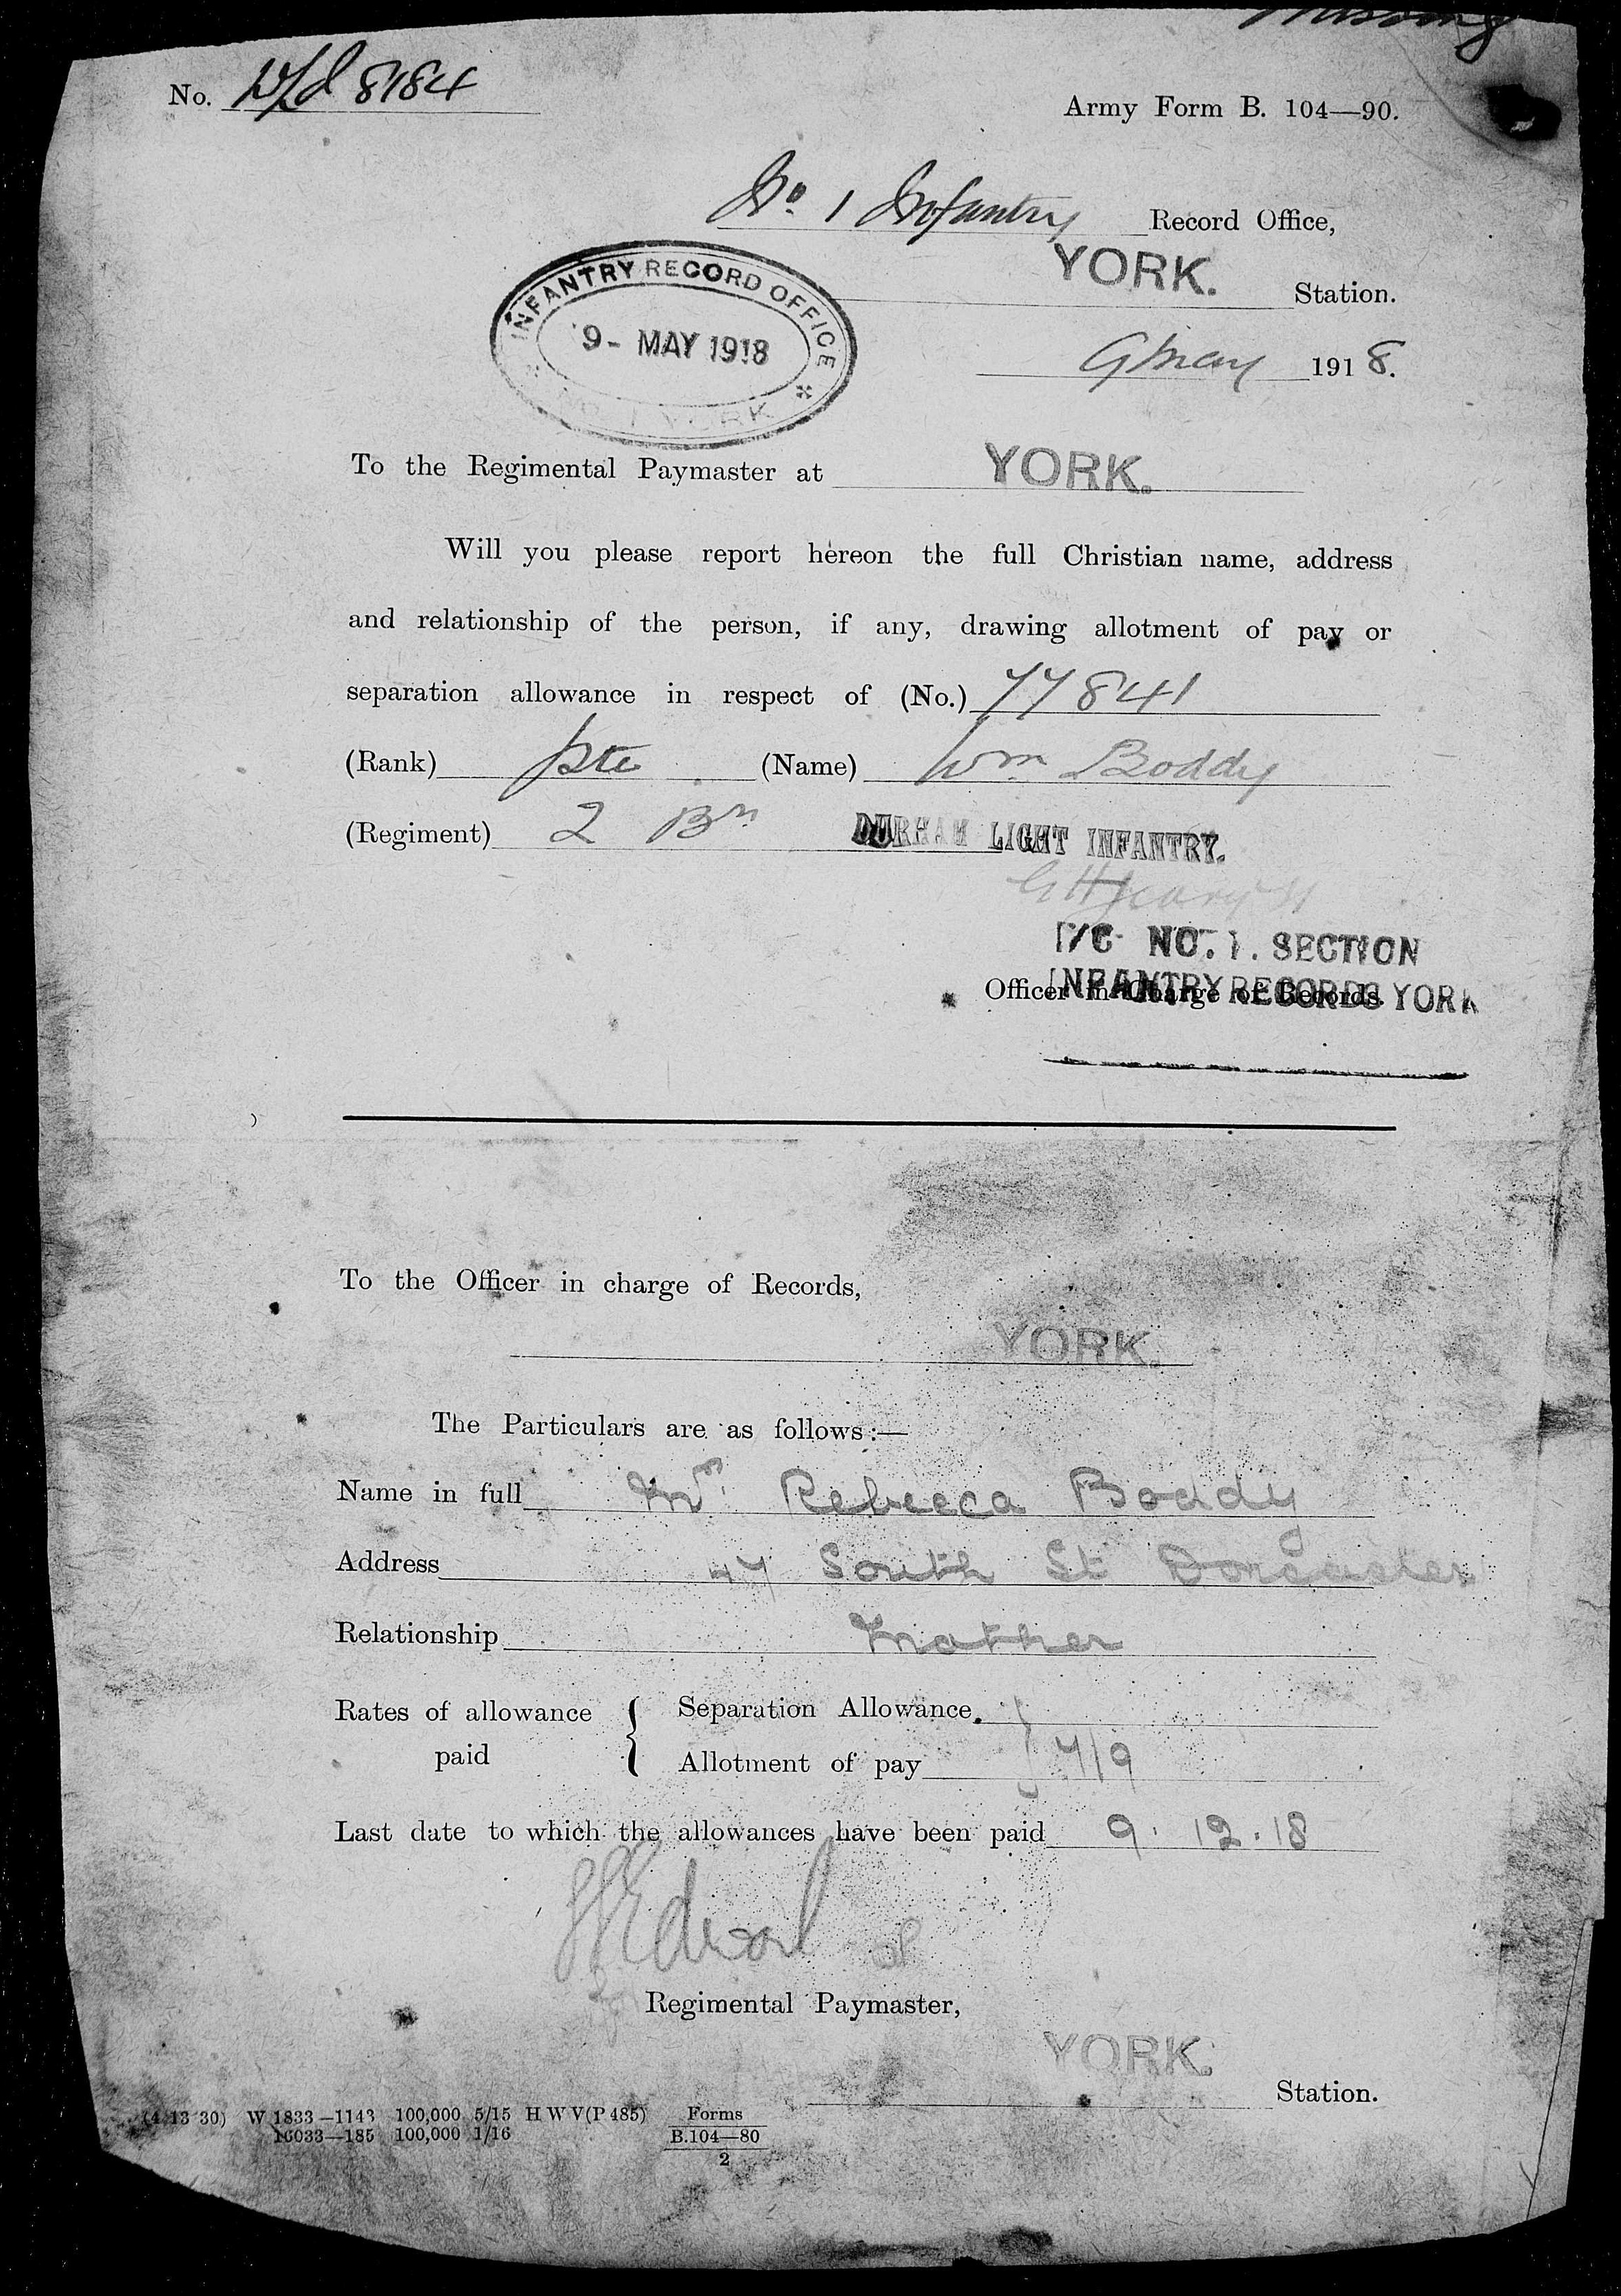 Missing
No. D/Ld 8184
Army Form B. 104—90.
No. 1 Infantry Record Office,
YORK. Station.
INFANTRY RECORD OFFICE
9- MAY 1918
NO. 1 YORK
9 May 1918.
To the Regimental Paymaster at YORK.
Will you please report hereon the full Christian name, address
and relationship of the person, if any, drawing allotment of pay or
separation allowance in respect of (No.) 77841
(Rank) Pte (Name) Wm Boddy
(Regiment) 2 Bn DURHAM LIGHT INFANTRY.
I/C NO. 1. SECTION
INFANTRY RECORDS YORK
Officer in Charge of Records.
To the Officer in charge of Records,
YORK.
The Particulars are as follows:—
Name in full Mrs. Rebecca Boddy
Address 47 South St Doncaster
Relationship Mother
Rates of allowance paid { Separation Allowance
Allotment of pay } 7/9
Last date to which the allowances have been paid 9.12.18
Regimental Paymaster,
YORK.
Station.
(4 13 30) W 1833—1143 100,000 5/15 H W V(P 485) Forms
16033—185 100,000 1/16 B.104—80
2